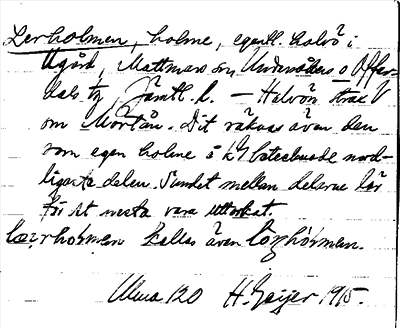 Lerholmen, holme, egentl. halvö i
Ugård, Mattmars sn, Undersåkers o Offer-
dals tg Jämtl. l. — Halvön strax V
om Mörtån. Dit räknas även den
som egen holme å kG betecknade nord-
ligaste delen. Sundet mellan delarne lär
för det mesta vara uttorkat.
kallas även
Ulma 120 H. Geijer 1915.